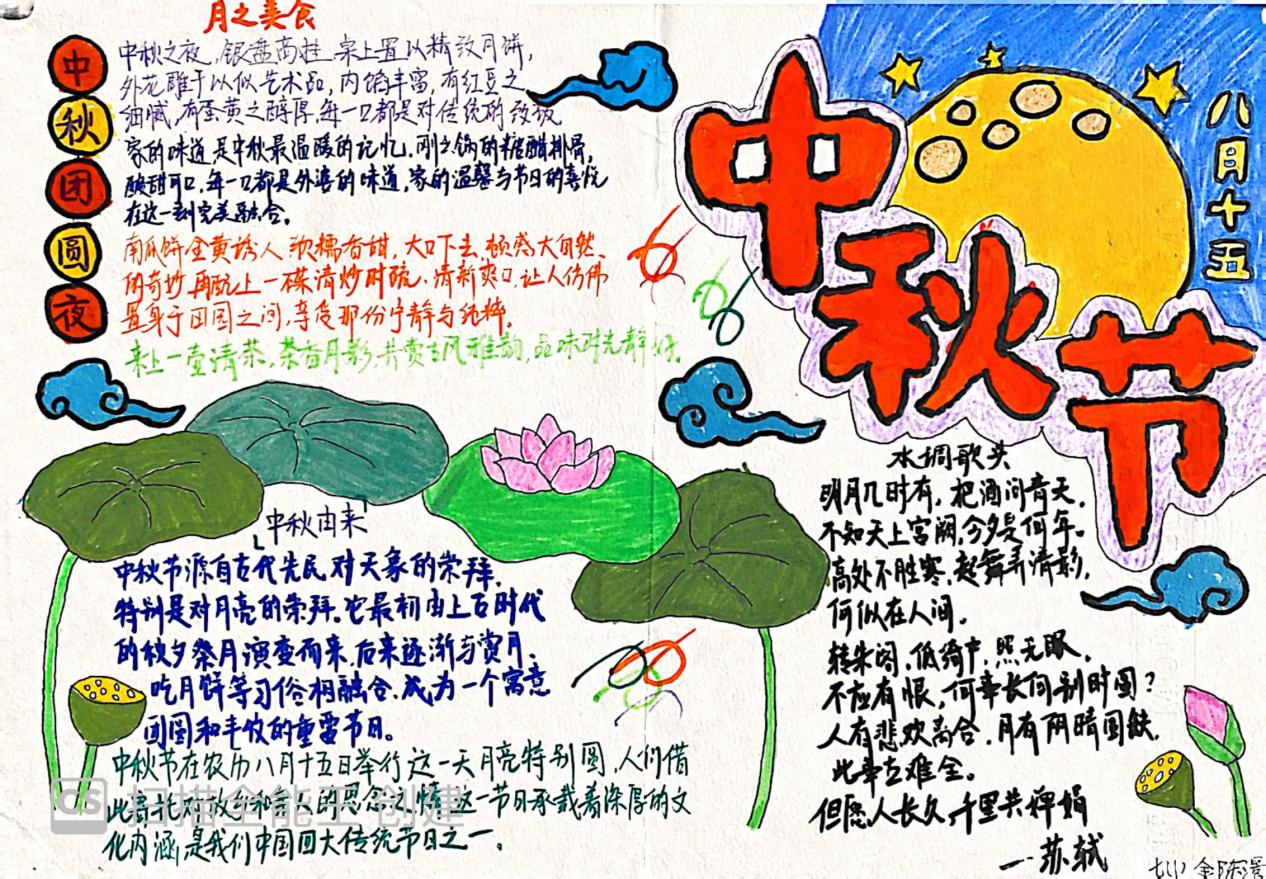 月之美食
中秋团圆夜
中秋之夜,银盘高挂,桌上置以精致月饼,
外花雕于以似艺术品,内馅丰富,有红豆之
细腻,有蛋黄之醇厚,每一口都是对传统的致敬
家的味道是中秋最温暖的记忆,刚之锅的糖醋排骨,
酸甜可口,每一口都是外婆的味道,家的温馨与节日的喜悦
在这一刻完美融合。
南瓜饼金黄诱人,软糯香甜,大口下去,顿感大自然
的奇妙,再配上一碟清炒时蔬,清新爽口,让人仿佛
置身于田园之间,享受那份宁静与纯粹。
来上一壶清茶,茶香月影,共赏古风雅韵,品味时光静好。
中秋节
八月十五
中秋由来
中秋节源自古代先民对天象的崇拜,
特别是对月亮的崇拜。它最初由上古时代
的秋夕祭月演变而来,后来逐渐与赏月、
吃月饼等习俗相融合,成为一个寓意
团圆和丰收的重要节日。
中秋节在农历八月十五日举行这一天月亮特别圆,人们借
此寄托对故乡和亲人的思念之情,这一节日承载着深厚的文
化内涵,是我们中国四大传统节日之一。
水调歌头
明月几时有,把酒问青天。
不知天上宫阙,今夕是何年。
高处不胜寒,起舞弄清影,
何似在人间。
转朱阁,低绮户,照无眠。
不应有恨,何事长向别时圆?
人有悲欢离合,月有阴晴圆缺,
此事古难全。
但愿人长久,千里共婵娟
——苏轼
CS 扫描全能王 创建